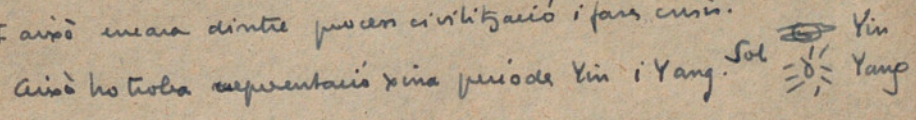 I això encara dintre procés civilització i fases crisis. Yin
Això ho troba representació xina període Yin i Yang. Sol Yang